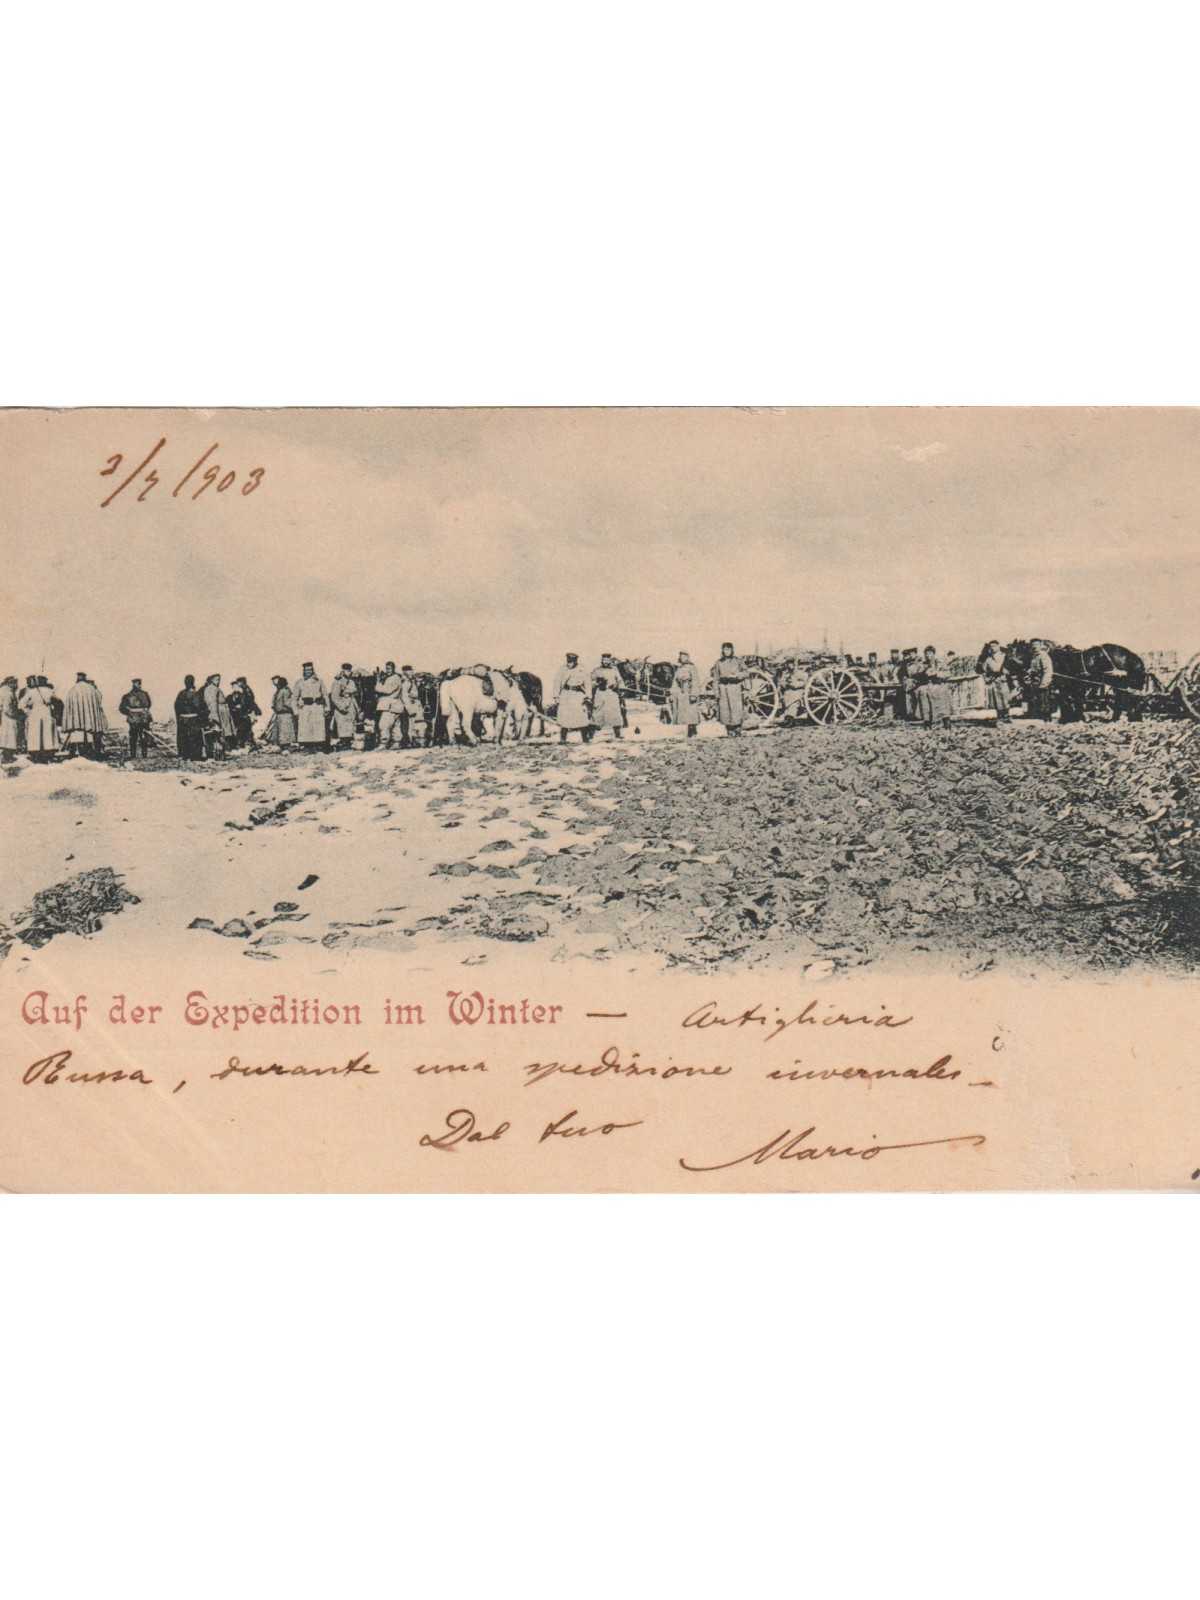 3/7/903
Auf der Expedition im Winter — Artiglieria
Russa, durante una spedizione invernale -
Dal tuo Mario